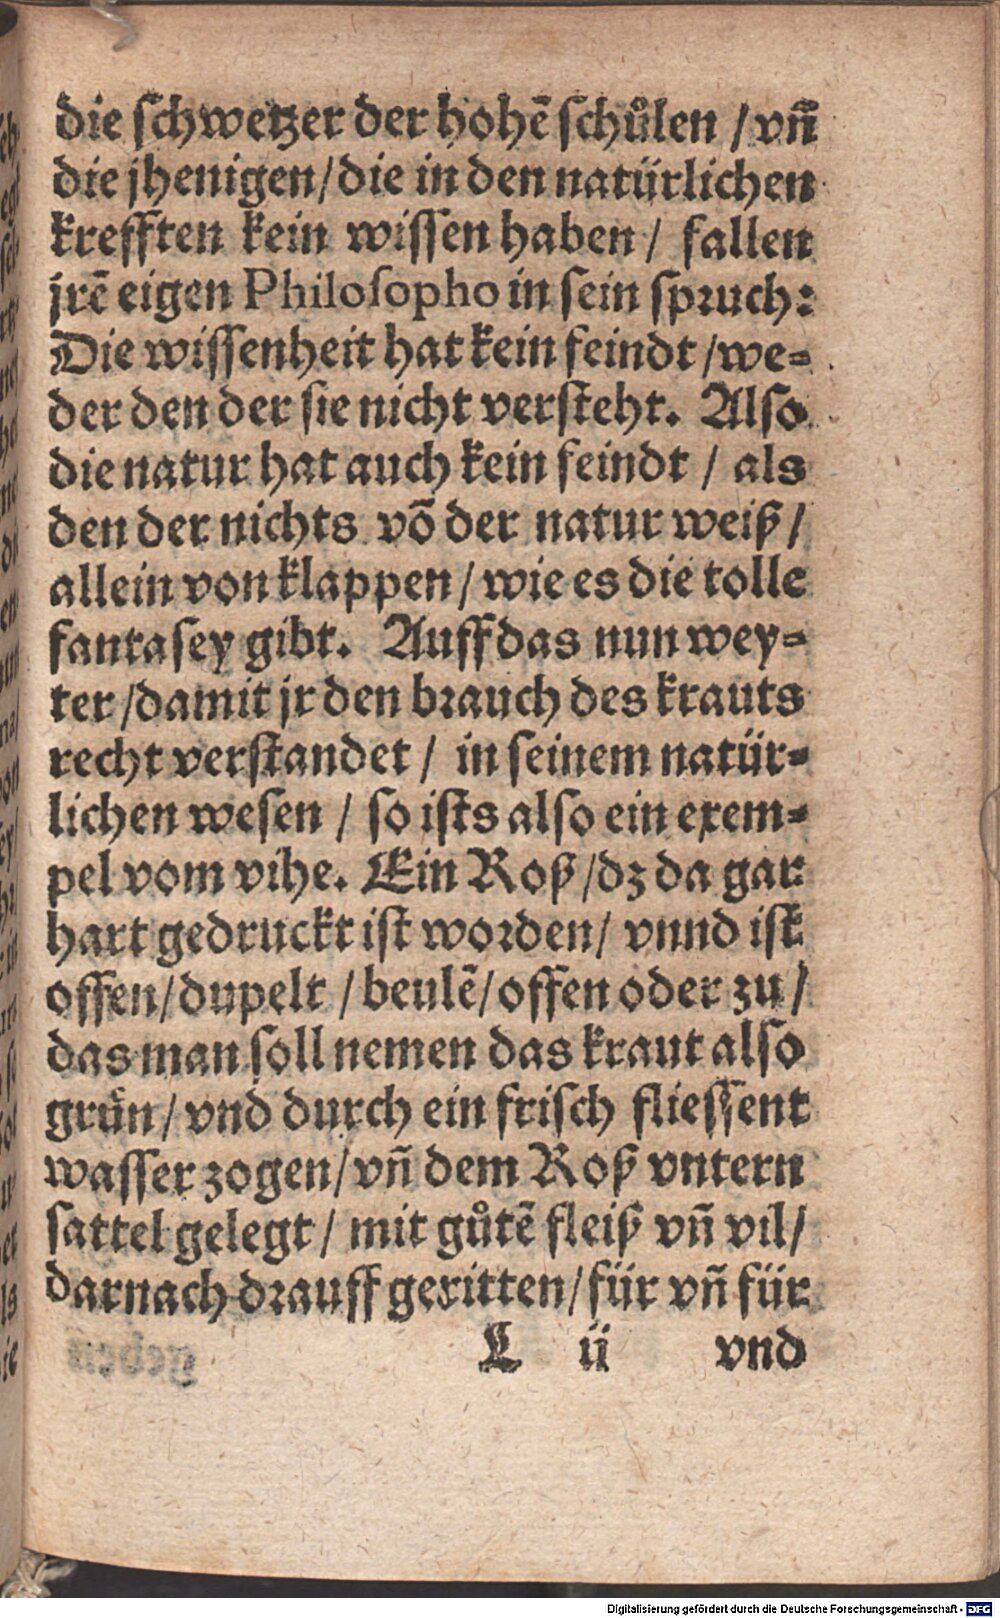 die ſchwetzer der hohē ſchůlen / vñ
die jhenigen/die in den natürlichen
krefften kein wiſſen haben / fallen
jrē eigen Philoſopho in ſein ſpruch:
Die wiſſenheit hat kein feindt /we-
der den der ſie nicht verſteht. Alſo
die natur hat auch kein feindt / als
den der nichts võ der natur weiß /
allein von klappen / wie es die tolle
fantaſey gibt. Auff das nun wey-
ter /damit jr den brauch des krauts
recht verſtandet / in ſeinem natür-
lichen weſen / ſo iſts alſo ein exem-
pel vom vihe. Ein Roß /dz da gar
hart gedruckt iſt worden / vnnd iſt
offen/dupelt / beulē/offen oder zu /
das man ſoll nemen das kraut alſo
grün / vnd durch ein friſch flieſſent
waſſer zogen/vñ dem Roß vntern
ſattel gelegt / mit gůtē fleiß vñ vil/
darnach drauff geritten/für vñ für
L ii vnd
Digitalisierung gefördert durch die Deutsche Forschungsgemeinschaft - DFG